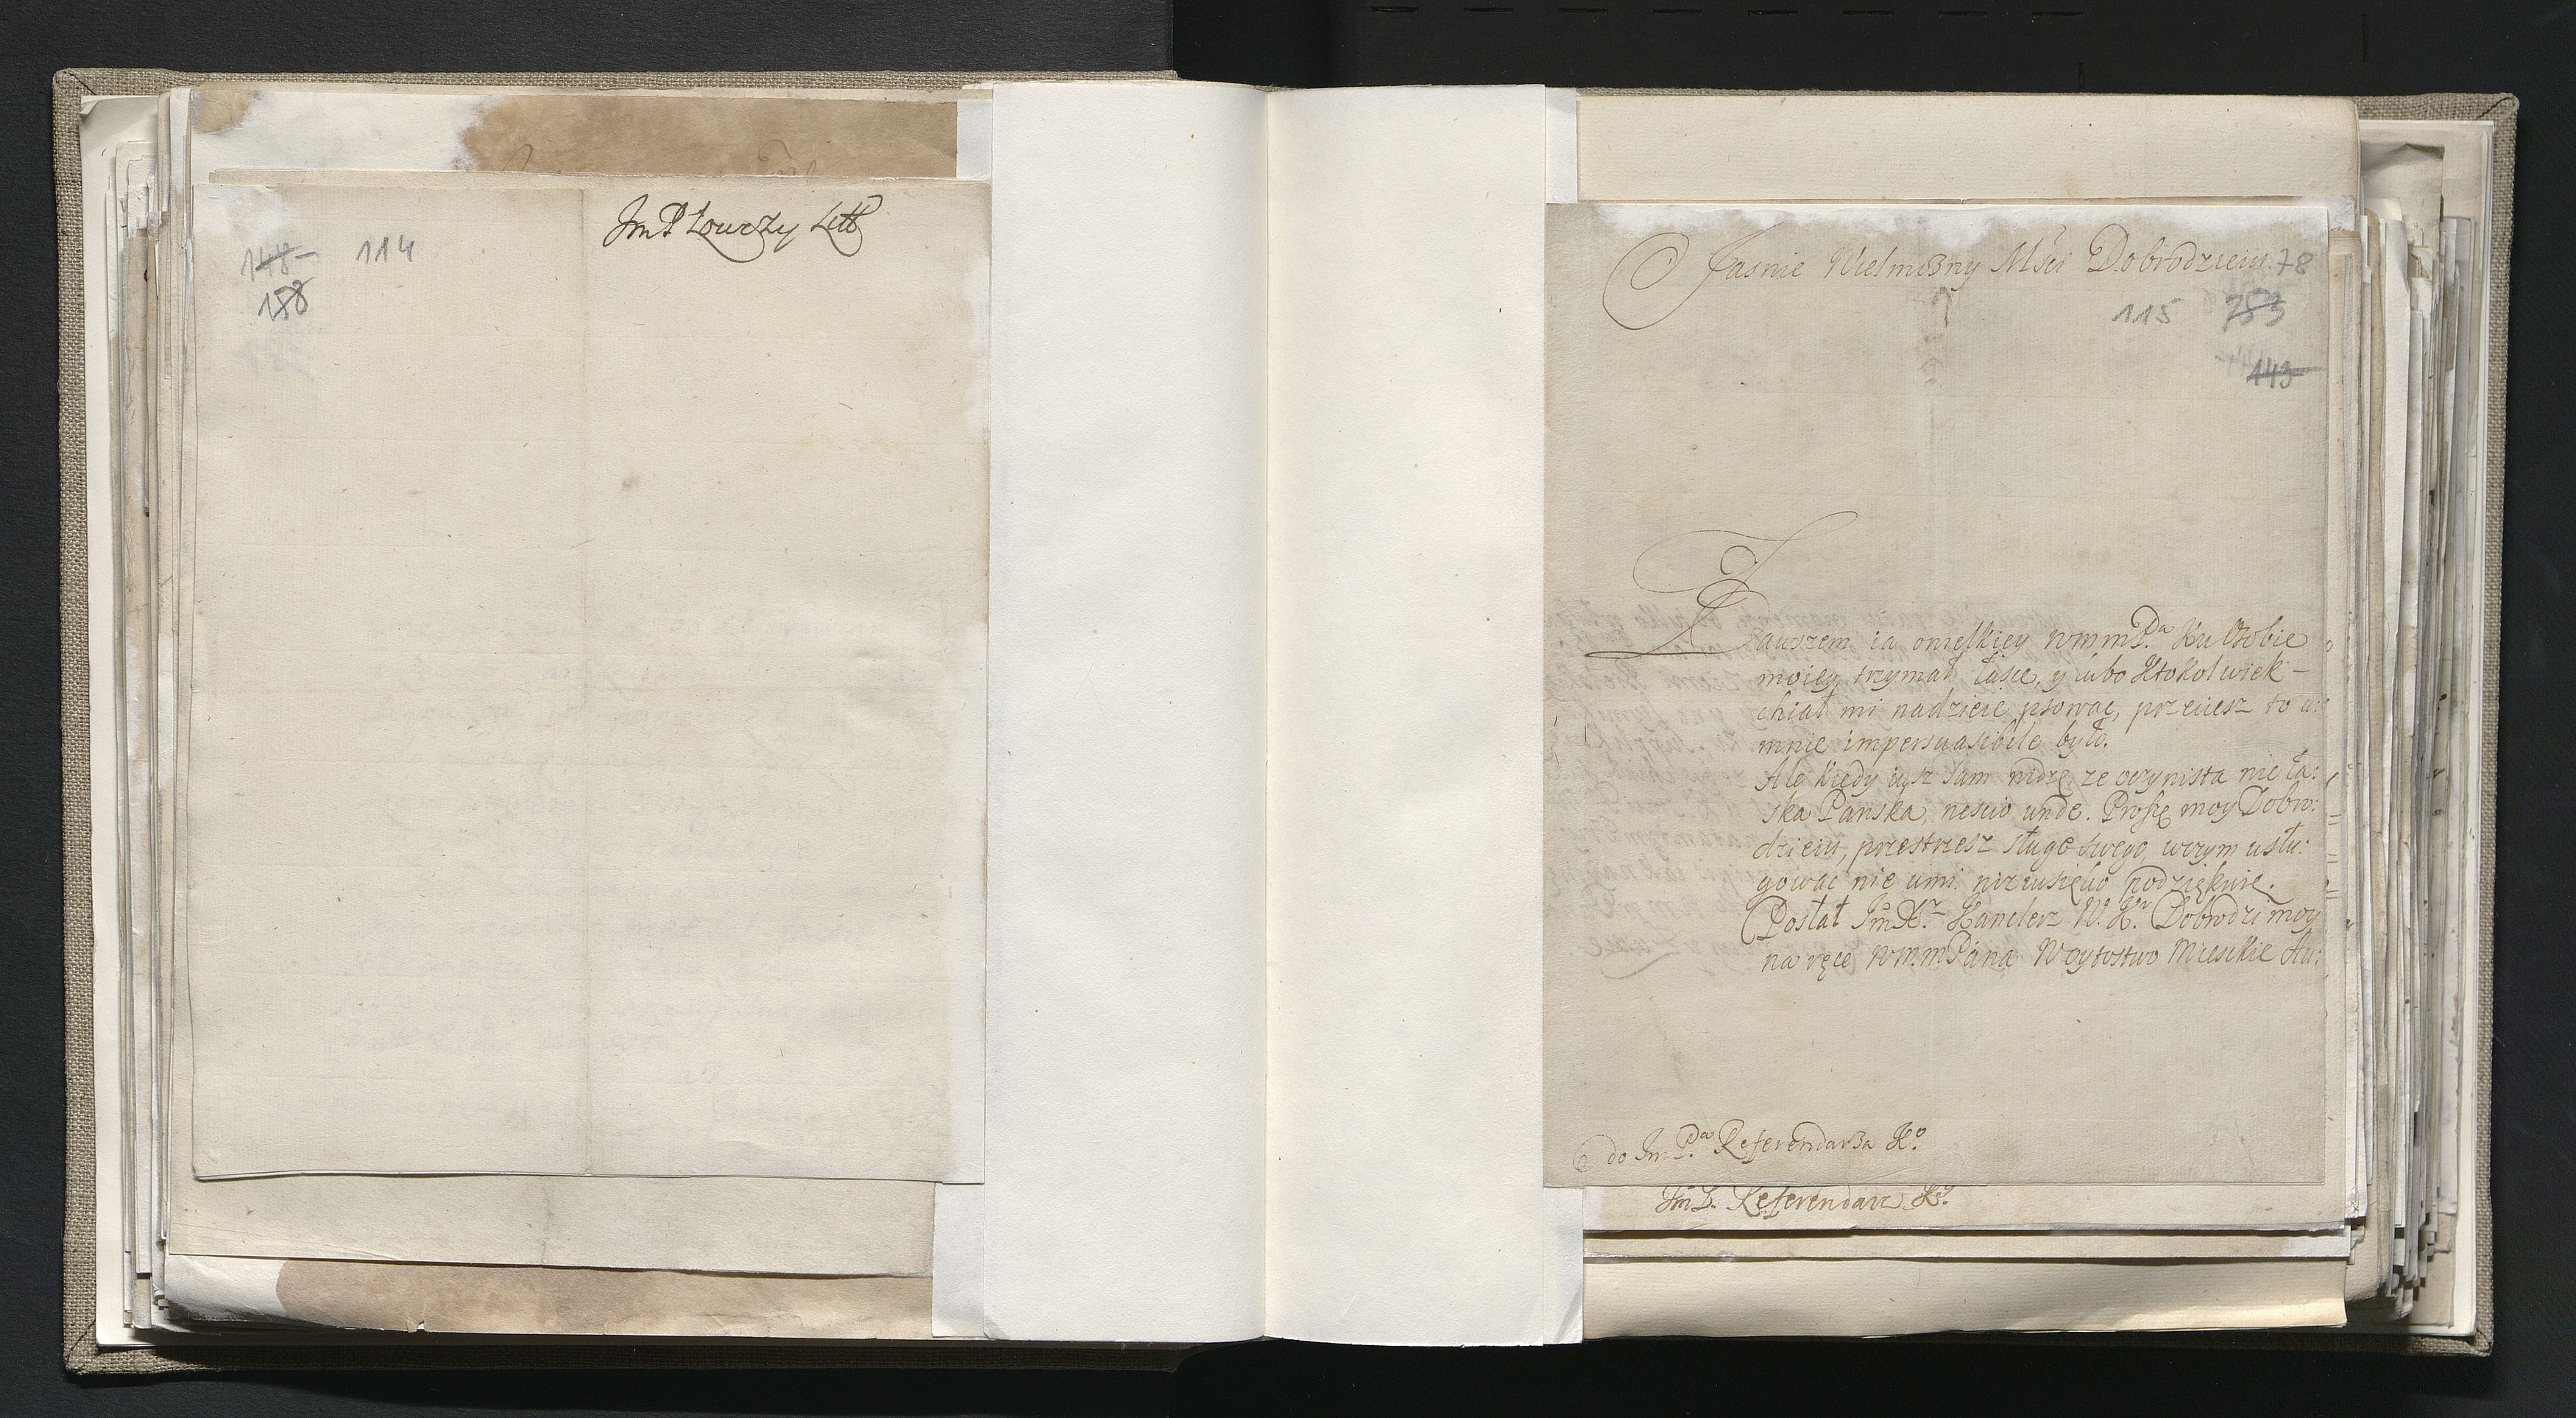 ImP Łowczy Litt
148
114
188
Jasnie Wielmożny Mści Dobrodzieiu. 78
115 783
143
Zawszem ia o nieskiey WmmPa. Ku Osobie
moiey trzymał łasce, y lubo Ktokolwiek –
chiał mi nadzieie psowac, przeciesz to u:
mnie impersuasibile było.
Ale kiedy iusz sam widzę ze oczywista nie ła:
ska Panska, nescio unde. Proszę moy Dobro:
dzieiu, przestrzesz sługe swego wczym usłu:
gowac nie umi podziękuie.
Posłał JmX. Kanclerz W. K. Dobrodzi moy
na ręce WmmPana Woytostwo Mieskie Au:
do Jm Pa. Referendarza Ko.
Jm P. Referendarz Ko.